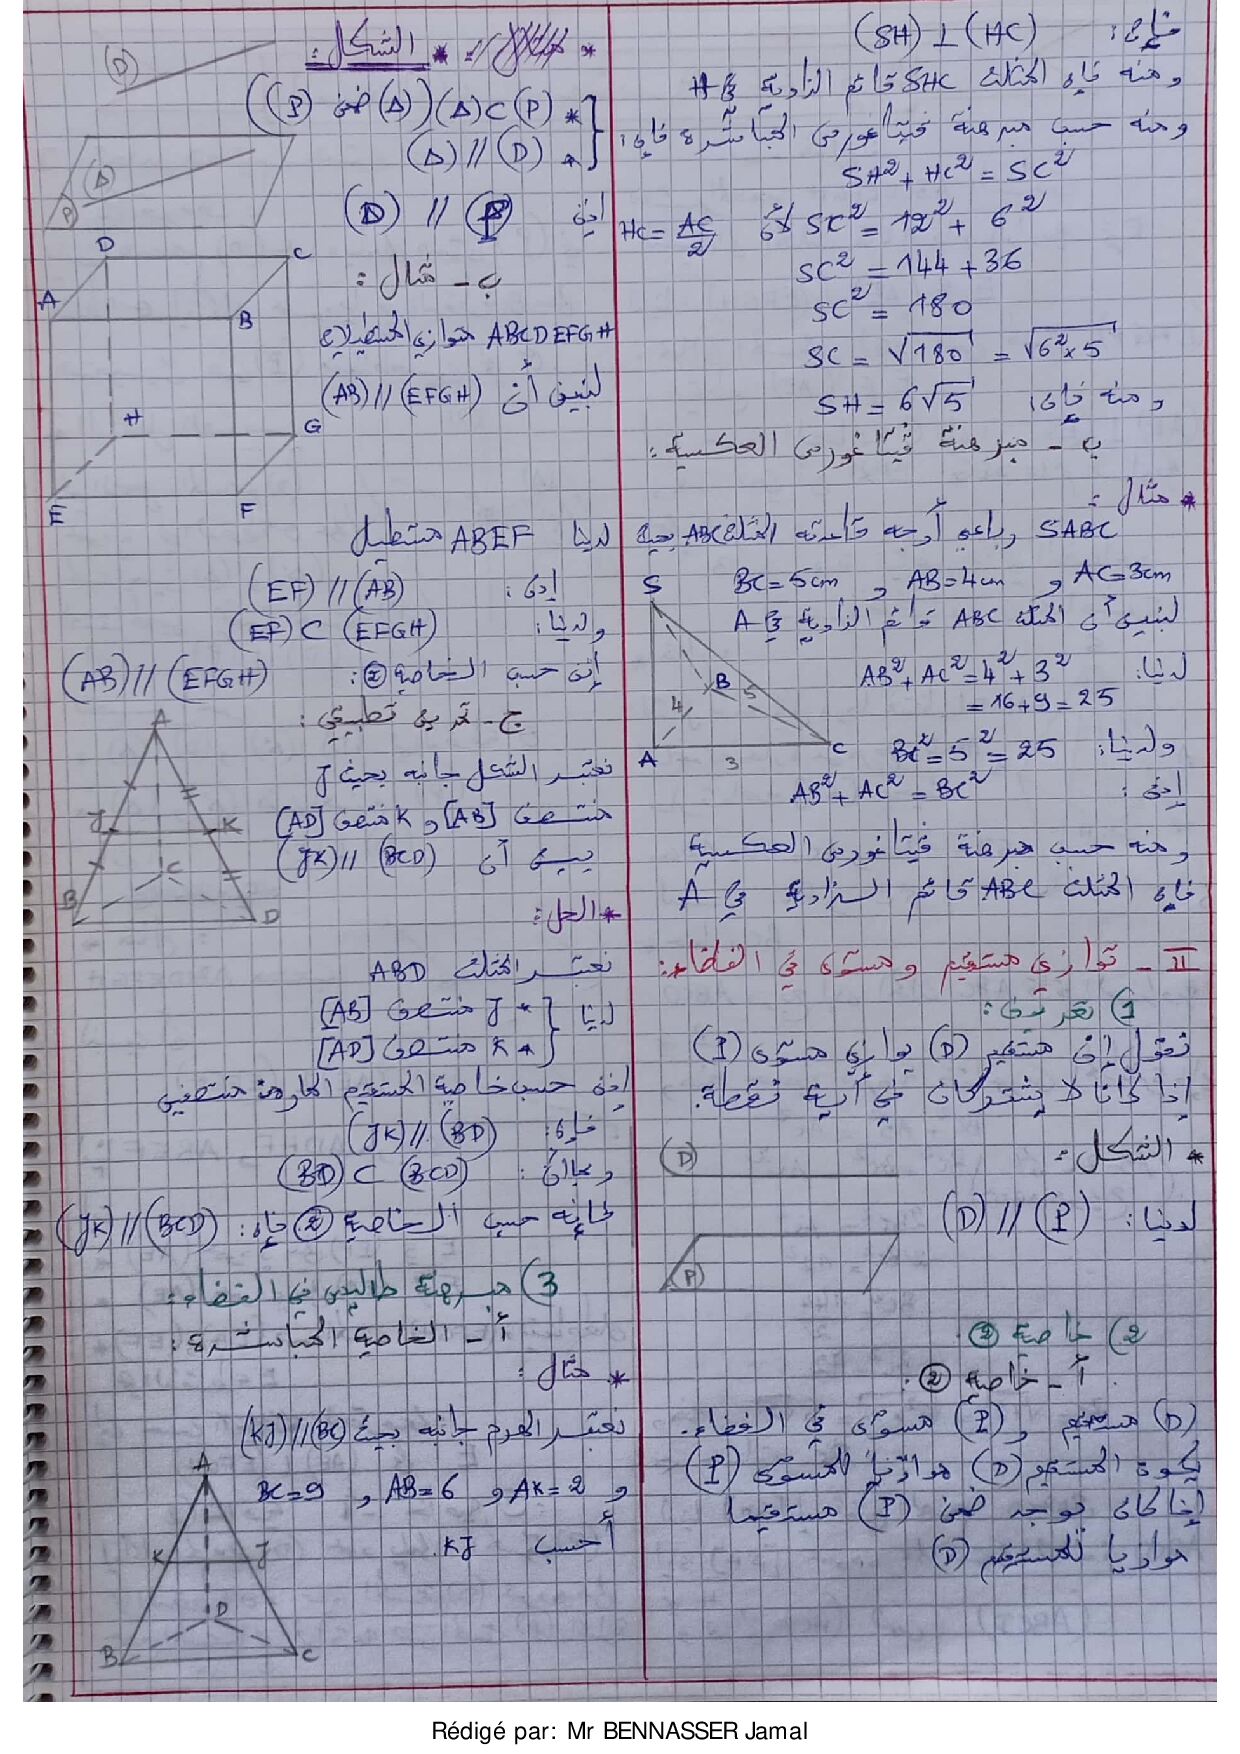 فإن: (SH) ⊥ (HC)
ومنه فإن المثلث SHC قائم الزاوية في H
ومنه حسب مبرهنة فيتاغورس المباشرة فإن:
SH² + HC² = SC²
HC = AC/2 لأن SC² = 12² + 6²
SC² = 144 + 36
SC² = 180
SC = √180 = √6²×5
ومنه فإن: SH = 6√5
ب - مبرهنة فيتاغورس العكسية:
* مثال:
SABC رباعي أوجه قاعدته المثلث ABC بحيث
AC = 3cm و AB = 4cm و BC = 5cm
لنبين أن المثلث ABC قائم الزاوية في A
لدينا: AB² + AC² = 4² + 3²
= 16 + 9 = 25
ولدينا: BC² = 5² = 25
إذن: AB² + AC² = BC²
S
B
4
5
A
3
C
ومنه حسب مبرهنة فيتاغورس العكسية
فإن المثلث ABC قائم الزاوية في A
II - توازي مستقيم ومستوى في الفضاء:
1) تعريف:
نقول إن مستقيم (D) يوازي مستوى (P)
إذا كانا لا يشتركان في أية نقطة.
* الشكل:
(D)
لدينا: (D) // (P)
(P)
2) خاصية ②
أ - خاصية ②:
(D) مستقيم و (P) مستوى في الفضاء.
يكون المستقيم (D) موازيا للمستوى (P)
إذا كان يوجد ضمن (P) مستقيما
موازيا للمستقيم (D)
* الشكل:
(D)
* (Δ) ⊂ (P) ((Δ) ضمن (P))
* (Δ) // (D)
(Δ)
P
إذن (D) // (P)
ب - مثال:
ABCDEFGH متوازي المستطيلات
لنبين أن (AB) // (EFGH)
D
C
A
B
H
G
E
F
لدينا ABEF مستطيل
إذن: (EF) // (AB)
ولدينا: (EF) ⊂ (EFGH)
إذن حسب الخاصية ②: (AB) // (EFGH)
ج - تمرين تطبيقي:
نعتبر الشكل جانبه بحيث J
منتصف [AB] و K منتصف [AD]
بين أن (JK) // (BCD)
A
J
K
C
B
D
* الحل:
نعتبر المثلث ABD
لدينا * J منتصف [AB]
* K منتصف [AD]
إذن حسب خاصية المستقيم المار من منتصفي
فإن: (JK) // (BD)
وبما أن: (BD) ⊂ (BCD)
فإنه حسب الخاصية ② فإن: (JK) // (BCD)
3) مبرهنة طاليس في الفضاء:
أ - الخاصية المباشرة:
* مثال:
نعتبر الهرم جانبه بحيث (KJ) // (BC)
و AK = 2 و AB = 6 و BC = 9
أحسب KJ.
A
K
J
D
B
C
Rédigé par: Mr BENNASSER Jamal